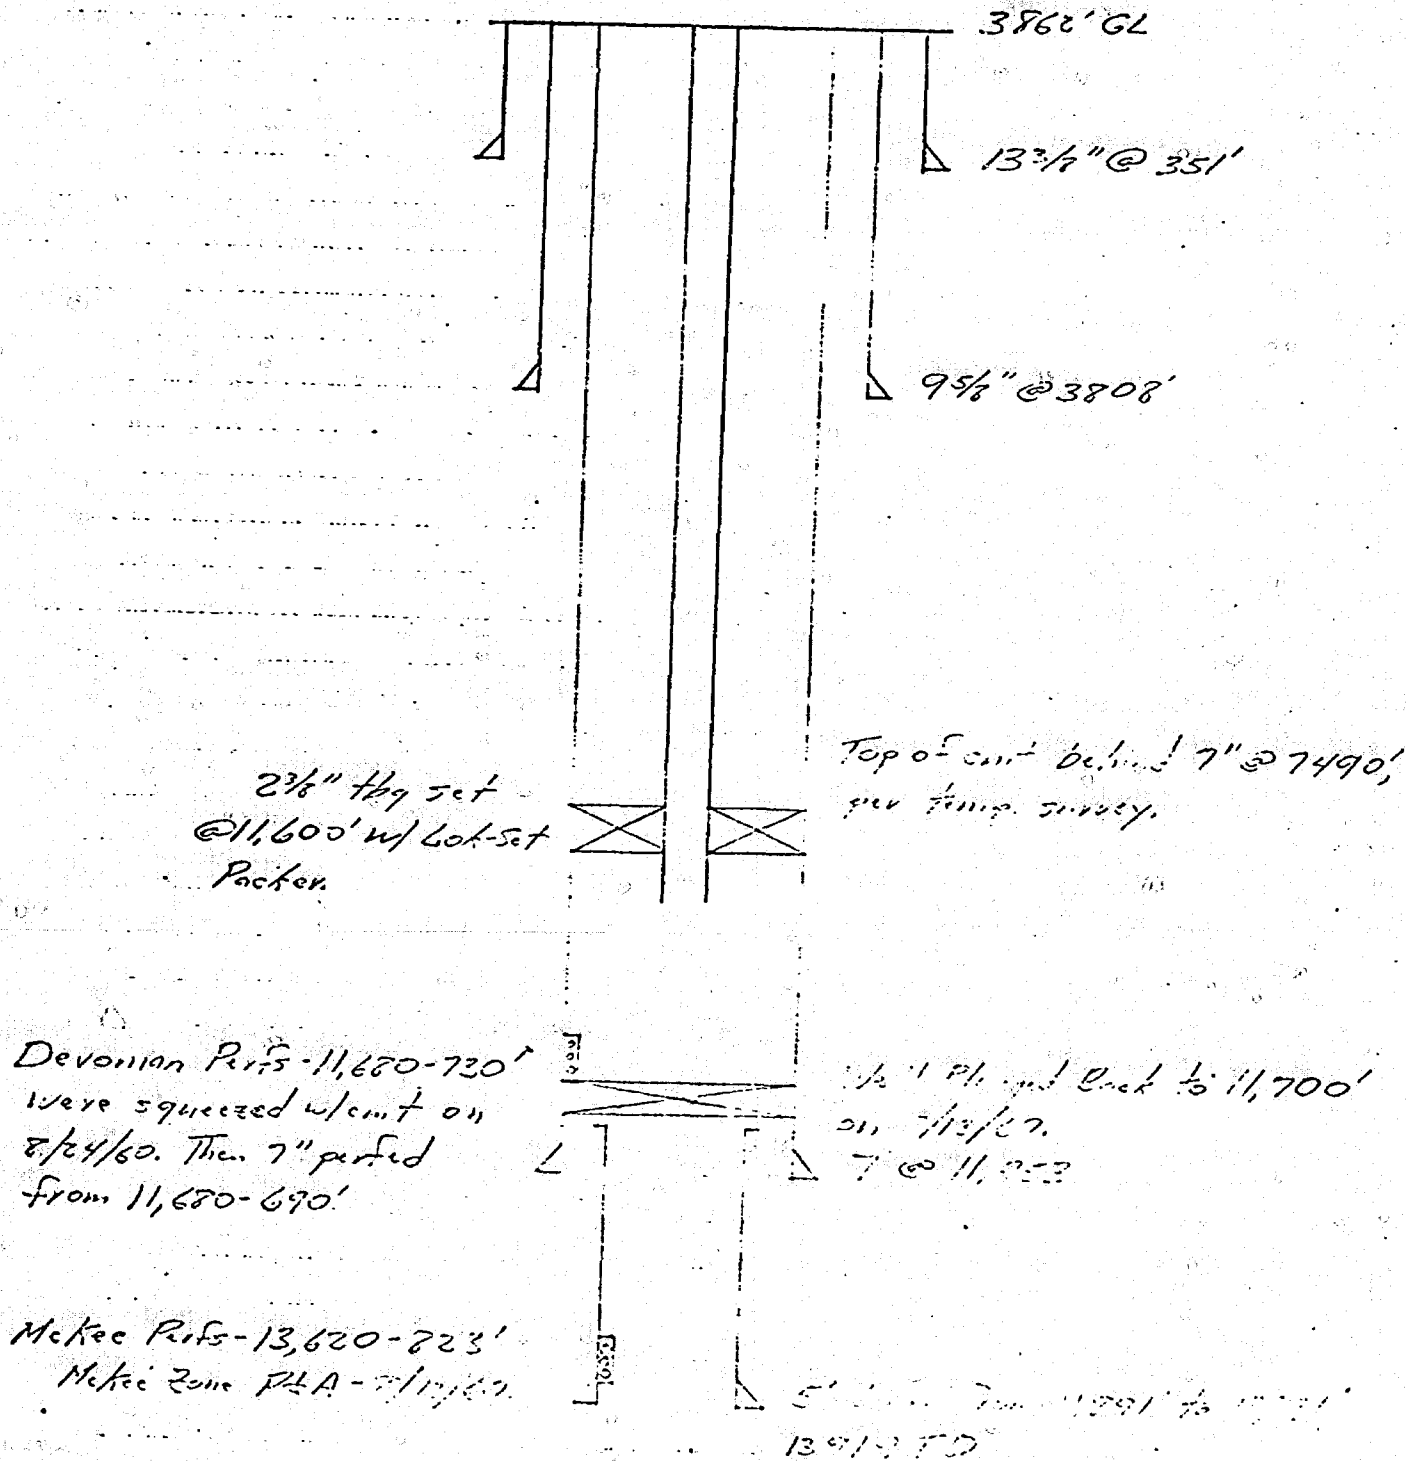 3862' GL
13 3/8" @ 351'
9 5/8" @ 3808'
Top of cmt behind 7" @ 7490',
per temp. survey.
2 3/8" tbg set
@ 11,600' w/ Lok-set
Packer.
Devonian Perfs - 11,680-730'
were squeezed w/cmt on
8/24/60. Then 7" perfed
from 11,680-690'.
Plugged Back to 11,700'
on
7" @
McKee Perfs - 13,620-823'
McKee Zone P&A -
5"
TD